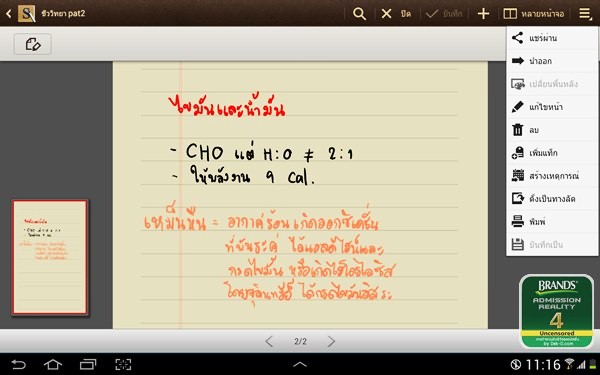 ชีววิทยา pat2
ปิด
บันทึก
หลายหน้าจอ
แชร์ผ่าน
นำออก
เปลี่ยนพื้นหลัง
แก้ไขหน้า
ลบ
เพิ่มแท็ก
สร้างเหตุการณ์
ตั้งเป็นทางลัด
พิมพ์
บันทึกเป็น
ไขมันและน้ำมัน
- CHO แต่ H:O ≠ 2:1
- ให้พลังงาน 9 Cal.
เหม็นหืน = อากาศร้อน เกิดออกซิเดชั่น
ที่พันธะคู่ ได้แอลดีไฮน์และ
กรดไขมัน หรือเกิดไฮโดรไลซิส
โดยจุลินทรีย์ ได้กรดไขมันอิสระ
BRAND'S
ADMISSION
REALITY
4
Uncensored
by Dek-D.com
2/2
11:16